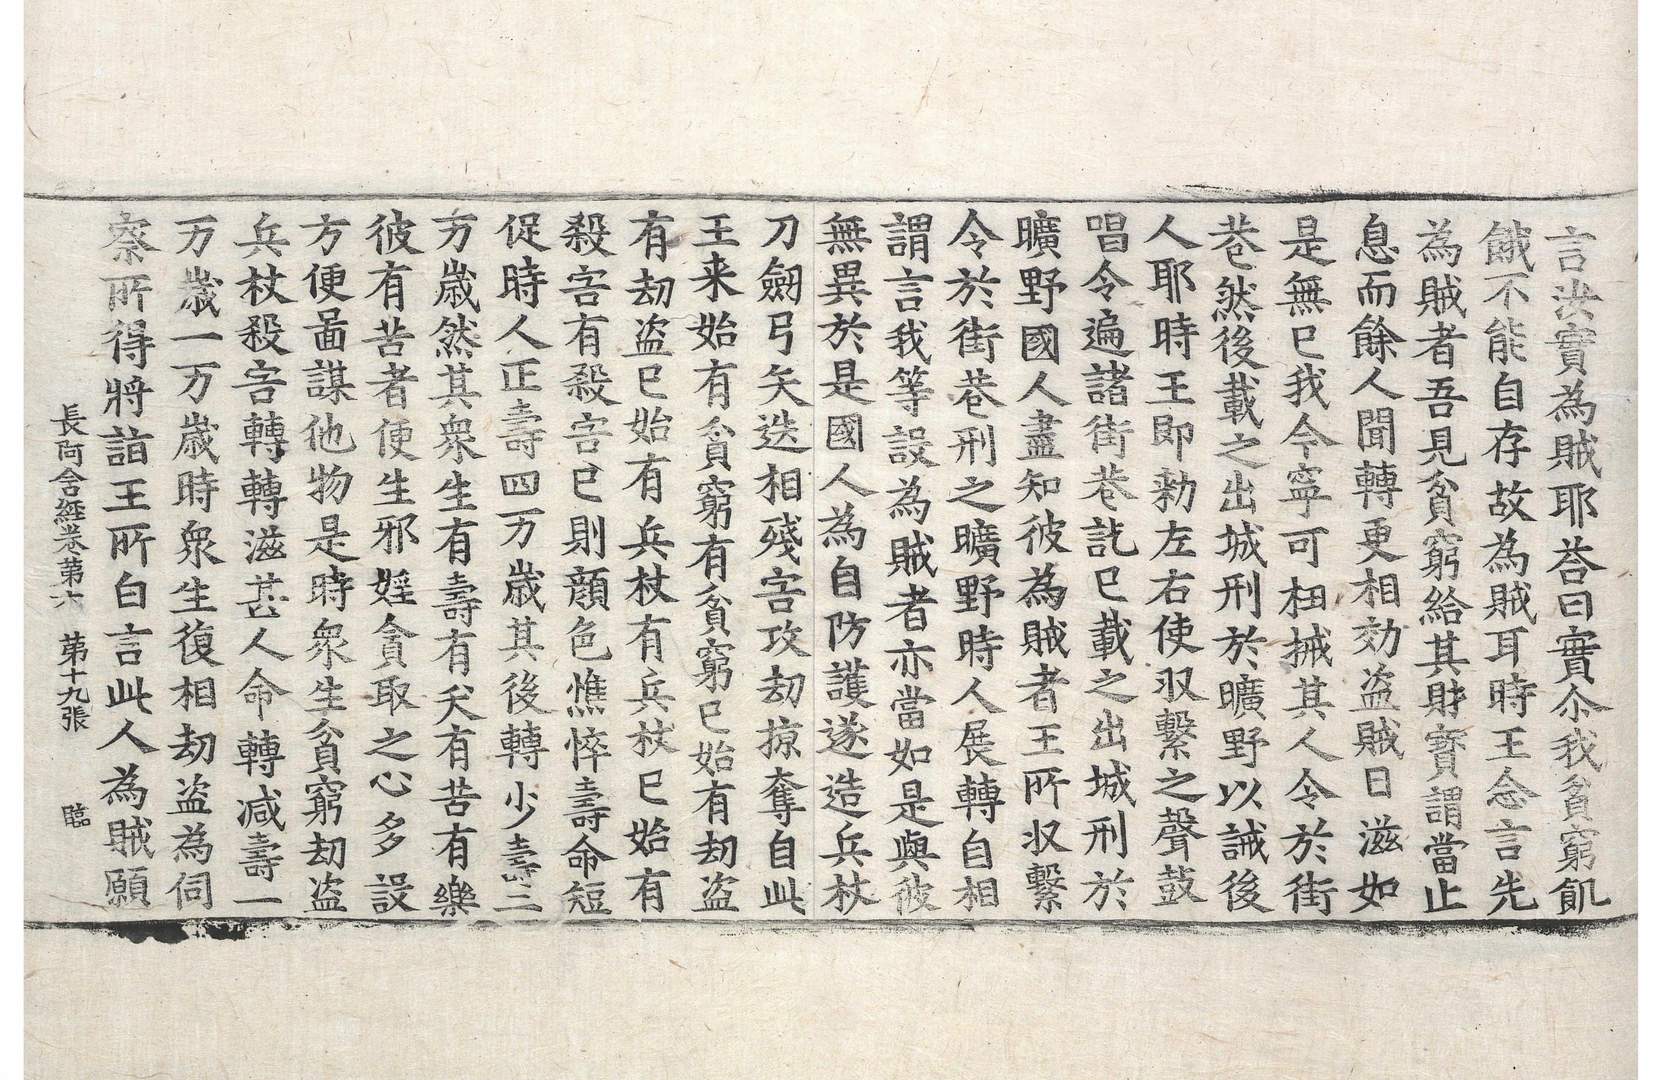 言汝實為賊耶荅曰實尒我貧窮飢
餓不能自存故為賊耳時王念言先
為賊者吾見貧窮給其財寶謂當止
息而餘人聞轉更相効盜賊日滋如
是無已我今寧可杻械其人令於街
巷然後載之出城刑於曠野以誡後
人耶時王即勑左右使収繫之聲鼓
唱令遍諸街巷訖已載之出城刑於
曠野國人盡知彼為賊者王所収繫
令於街巷刑之曠野時人展轉自相
謂言我等設為賊者亦當如是與彼
無異於是國人為自防護遂造兵杖
刀劒弓矢迭相殘害攻劫掠奪自此
王来始有貧窮有貧窮已始有劫盜
有劫盜已始有兵杖有兵杖已始有
殺害有殺害已則顔色憔悴壽命短
促時人正壽四万歲其後轉少壽三
万歲然其衆生有壽有夭有苦有樂
彼有苦者便生邪婬貪取之心多設
方便啚謀他物是時衆生貧窮劫盜
兵杖殺害轉轉滋甚人命轉減壽一
万歲一万歲時衆生復相劫盜為伺
察所得將詣王所白言此人為賊願
長阿含經卷第六 第十九張 臨